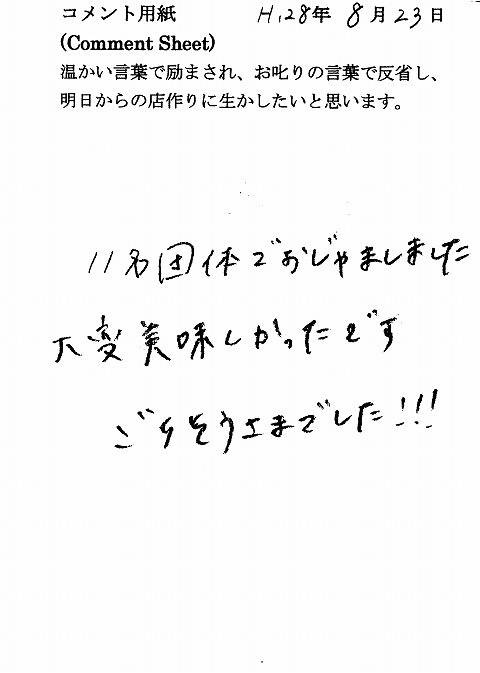 コメント用紙 H.28年 8月23日
(Comment Sheet)
温かい言葉で励まされ、お叱りの言葉で反省し、
明日からの店作りに生かしたいと思います。
11名団体でおじゃましました
大変美味しかったです
ごちそうさまでした!!!